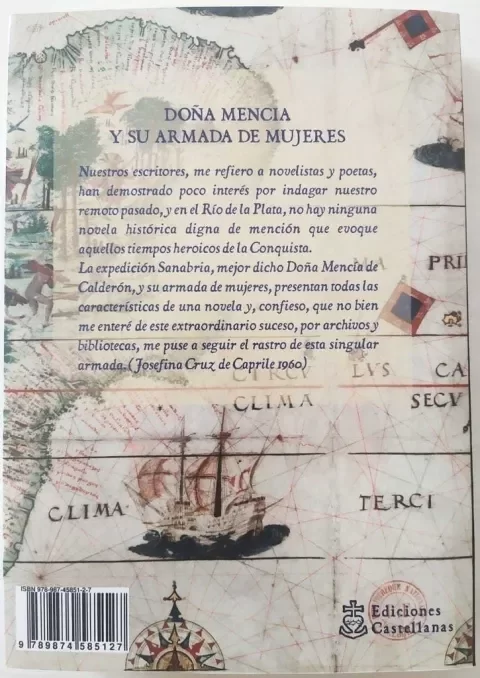 DOÑA MENCIA
Y SU ARMADA DE MUJERES
Nuestros escritores, me refiero a novelistas y poetas,
han demostrado poco interés por indagar nuestro
remoto pasado, y en el Río de la Plata, no hay ninguna
novela histórica digna de mención que evoque
aquellos tiempos heroicos de la Conquista.
La expedición Sanabria, mejor dicho Doña Mencía de
Calderón, y su armada de mujeres, presentan todas las
características de una novela y, confieso, que no bien
me enteré de este extraordinario suceso, por archivos y
bibliotecas, me puse a seguir el rastro de esta singular
armada. (Josefina Cruz de Caprile 1960)
PRI
LVS CA
CLIMA SECV
CLIMA TERCI
ISBN 978-987-45851-2-7
9 789874 585127
Ediciones
Castellanas